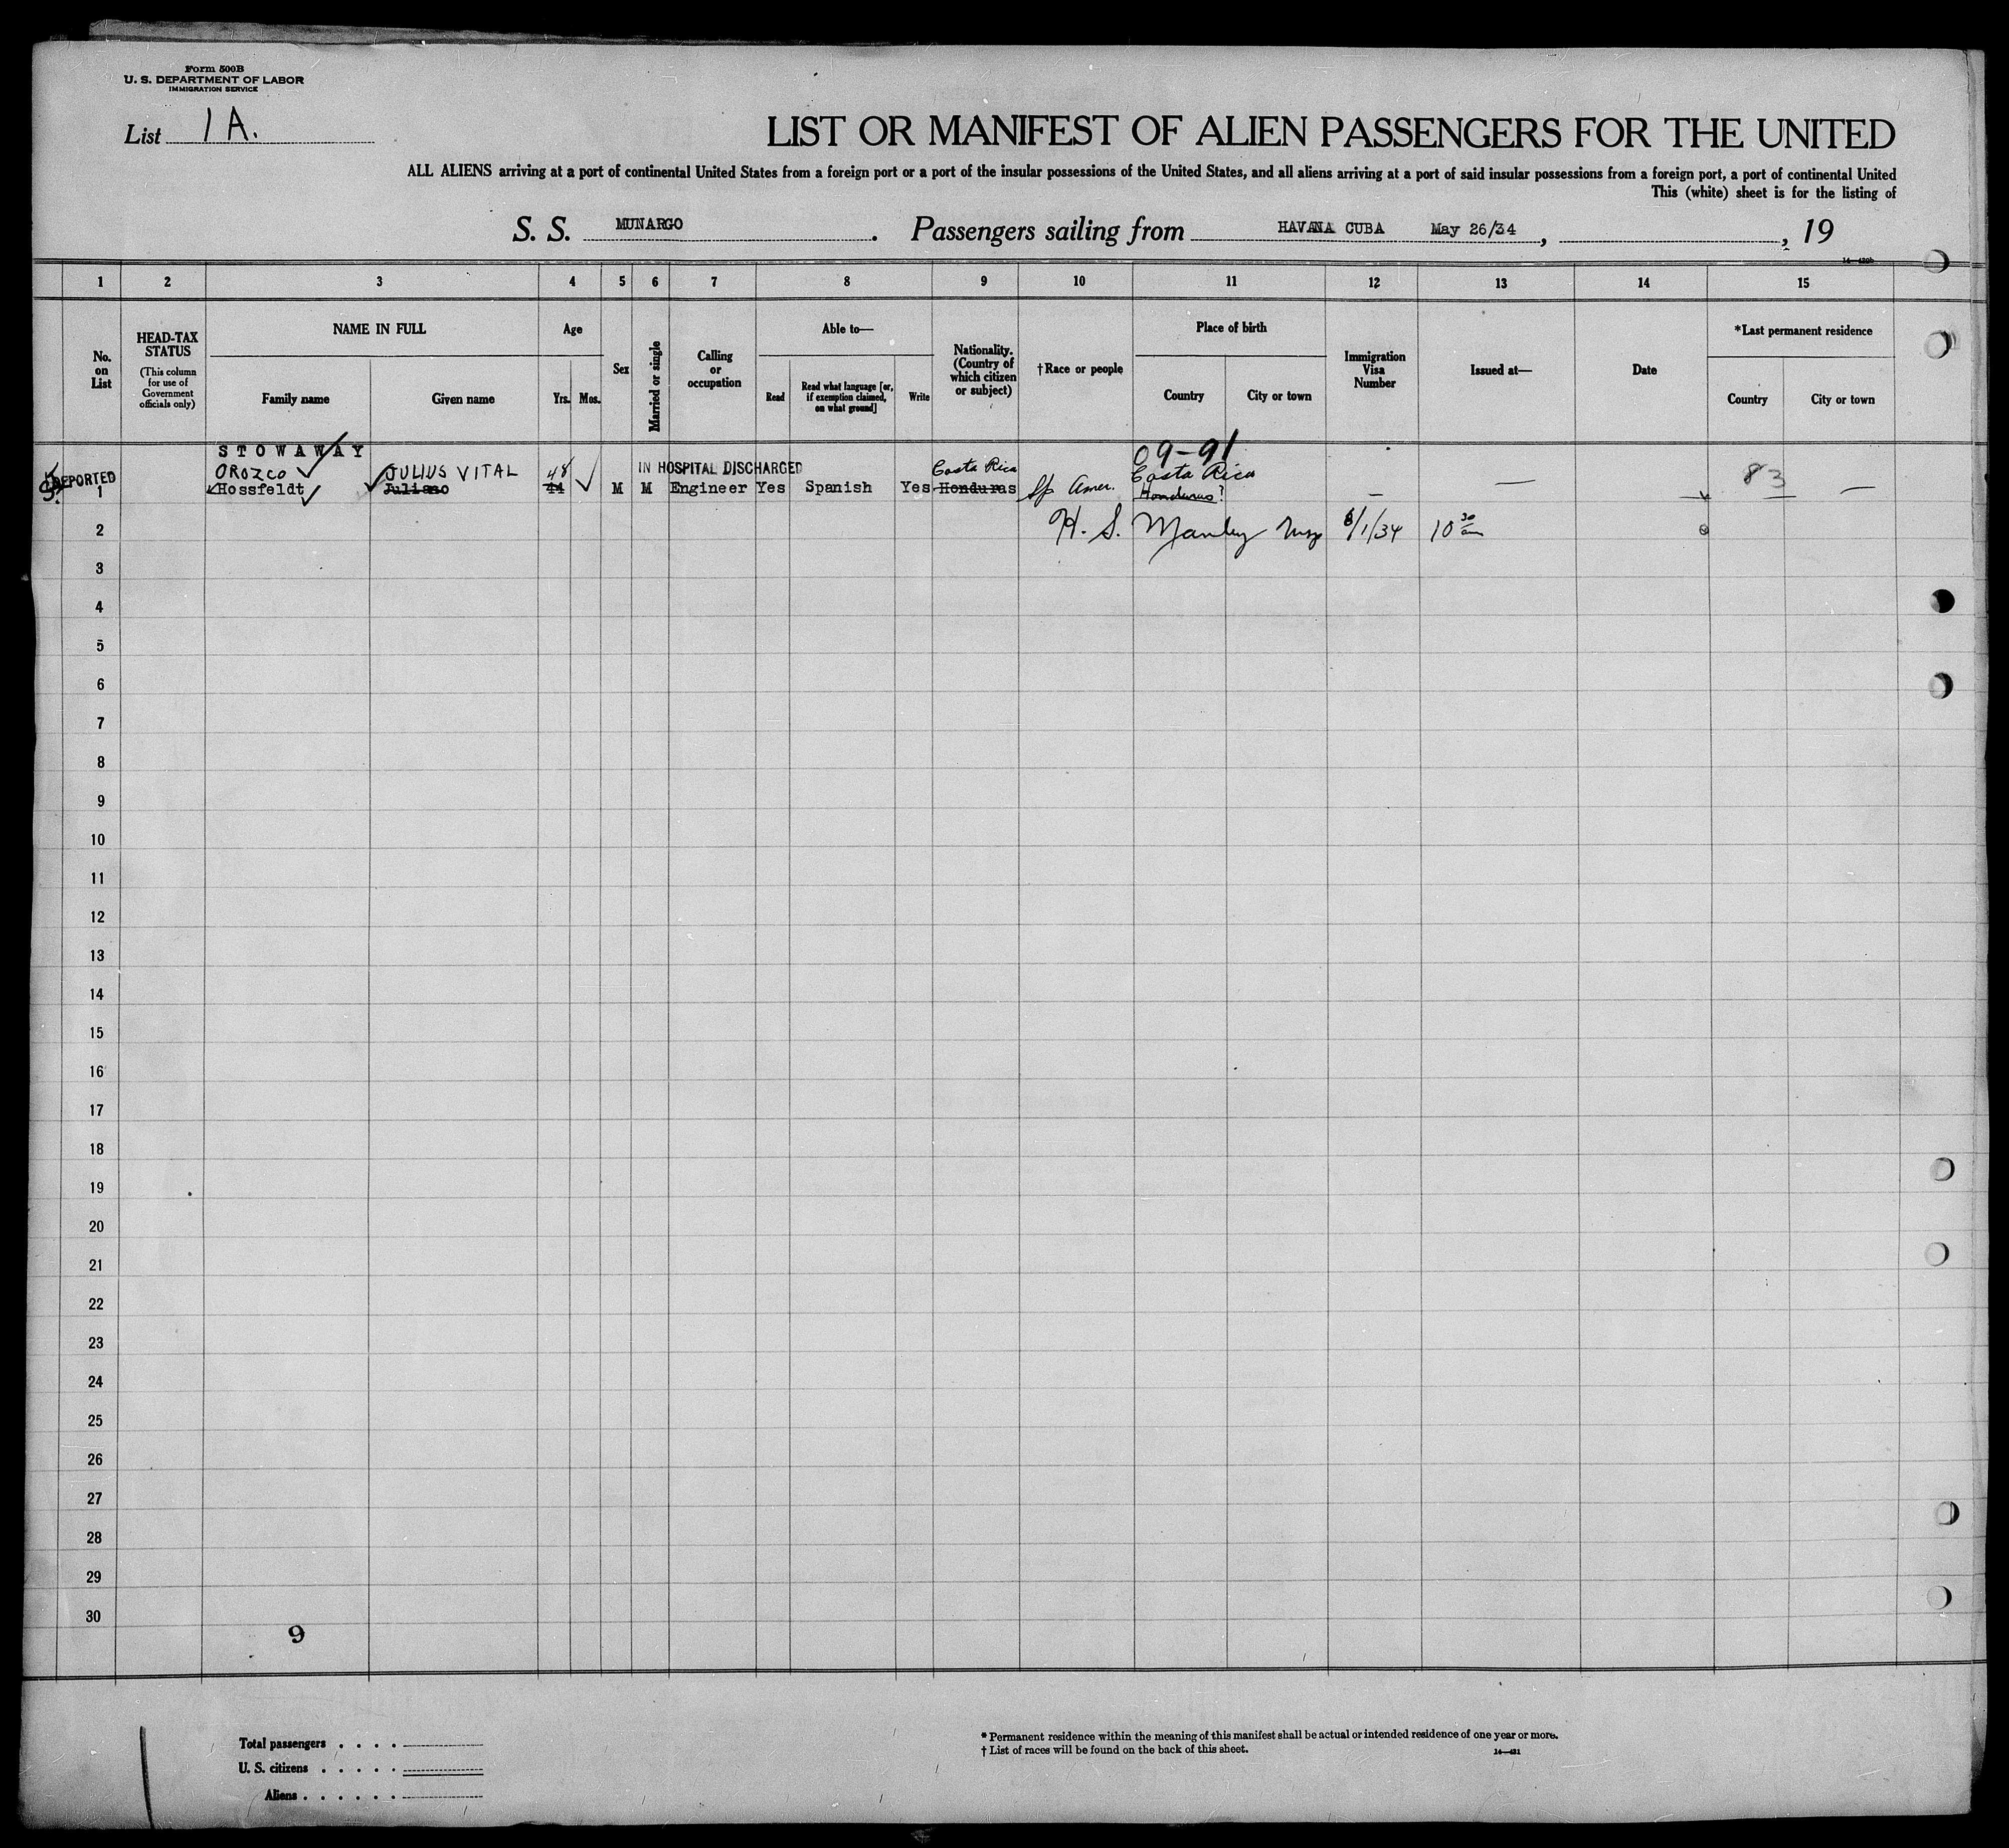 Form 500B
U. S. DEPARTMENT OF LABOR
IMMIGRATION SERVICE
List 1A.
LIST OR MANIFEST OF ALIEN PASSENGERS FOR THE UNITED
ALL ALIENS arriving at a port of continental United States from a foreign port or a port of the insular possessions of the United States, and all aliens arriving at a port of said insular possessions from a foreign port, a port of continental United
This (white) sheet is for the listing of
S. S. MUNARGO. Passengers sailing from HAVANA CUBA May 26/34, , 19
14—420b
1 2 3 4 5 6 7 8 9 10 11 12 13 14 15
No. on List
HEAD-TAX STATUS
(This column for use of Government officials only)
NAME IN FULL
Family name Given name
Age
Yrs. Mos.
Sex
Married or single
Calling or occupation
Able to—
Read
Read what language [or, if exemption claimed, on what ground]
Write
Nationality. (Country of which citizen or subject)
†Race or people
Place of birth
Country City or town
Immigration Visa Number
Issued at—
Date
*Last permanent residence
Country City or town
STOWAWAY 09-91
DEPORTED OROZCO JULIUS VITAL 48 IN HOSPITAL DISCHARGED Costa Rica Costa Rica 83
1 Hossfeldt Juliano 44 M M Engineer Yes Spanish Yes Honduras Sp Amer. Honduras? — — — — —
2 H. S. Manley Insp 6/1/34 10 30 am
3
4
5
6
7
8
9
10
11
12
13
14
15
16
17
18
19
20
21
22
23
24
25
26
27
28
29
30
9
Total passengers . . . .
U. S. citizens . . . . .
Aliens . . . . . .
* Permanent residence within the meaning of this manifest shall be actual or intended residence of one year or more.
† List of races will be found on the back of this sheet.
14—421